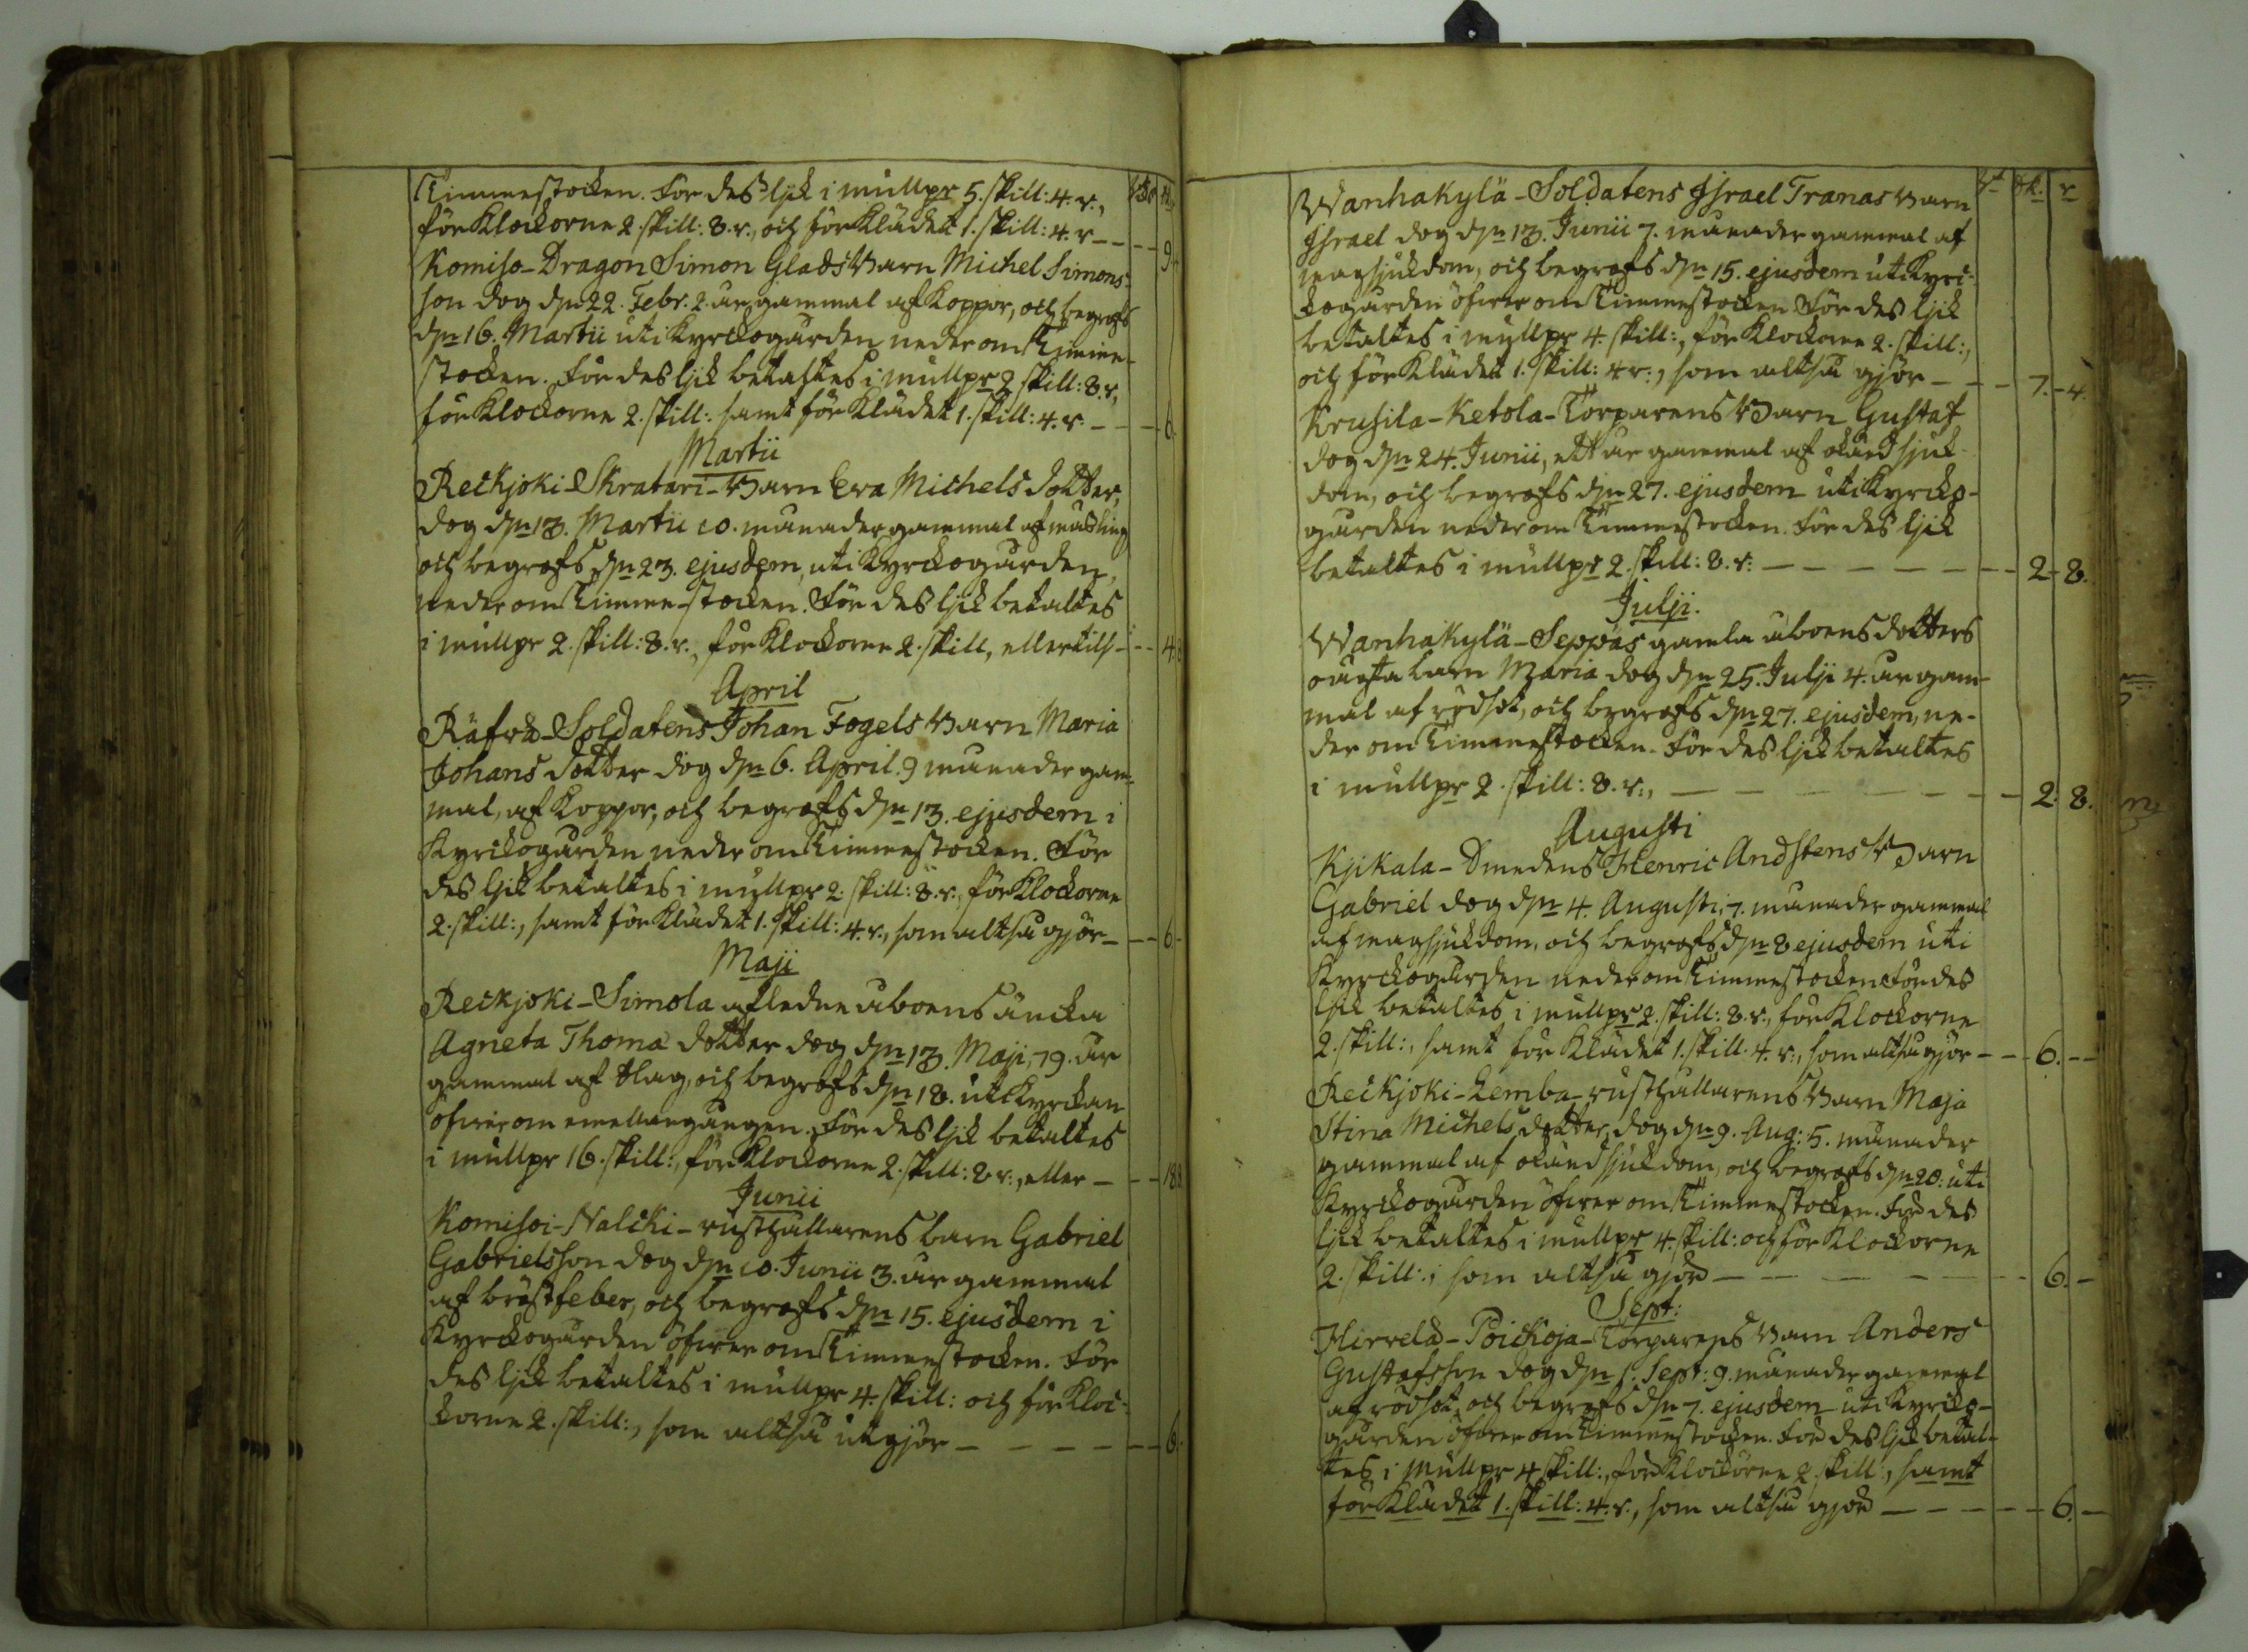 Timmestocken. För des lijk i mullpr 5. skill: 4. r.,
för Klockorne 2. skill: 8. r., och för Klädet 1. skill: 4. r -- 9
Komiso-Dragon Simon Glads Barn Michel Simons-
son dog dn 22. Febr. 2. år gammal af Koppor, och begrofs
dn 16. Martii uti Kyrckogården nederom Timme-
stocken. För des lijk betaltes i mullpr 2 skill: 8. r,
för Klockorne 2. skill: samt för Klädet 1. skill: 4. r. -- 6.
Martii
Reckjoki-Skratari-Barn Eva Michels dotter,
dog dn 13. Martii 10. månader gammal af mässling
och begrofs dn 23. ejusdem, uti Kyrckogården,
nederom Timme-stocken. För des lijk betaltes
i mullpr 2. skill: 8. r., för Klockorne 2. skill, eller tills- -- 4 8
April
Räfvä-Soldatens Johan Fogels Barn Maria
Johans dotter dog dn 6. April. 9 månader gam-
mal, af Koppor, och begrofs dn 13. ejusdem i
Kyrckogården nederom Timmestocken. För
des lijk betaltes i mullpr 2. skill: 8. r., för Klockorne
2. skill:, samt för Klädet 1. skill: 4. r., som altså gjör -- 6.
Maji
Reckjoki-Simola afledne åboens äncka
Agneta Thomæ dotter dog dn 13. Maji, 79. år
gammal af Hag, och begrofs dn 18. uti Kyrckan
öfwer om mellangången. För des lijk betaltes
i mullpr 16. skill:, för Klockorne 2. skill: 8 r:, eller -- 18 8
Junii
Komisoi-Nalcki-rusthållarens barn Gabriel
Gabrielsson dog dn 10. Junii 3. år gammal
af bröstfeber, och begrofs dn 15. ejusdem i
Kyrckogården öfwer om Timmestocken. För
des lijk betaltes i mullpr 4. skill: och för Kloc-
korne 2. skill:, som altså utgjör -- 6.
sk. r
Wanhakylä-Soldatens Israel Tranas Barn
Israel dog dn 13. Junii 7. månader gammal af
magsjukdom, och begrofs dn 15. ejusdem uti Kyrc-
kogården öfwer om Timmestocken. För des lijk
betaltes i mullpr 4. skill:, för Klockorne 2. skill:,
och för Klädet 1. skill: 4 r:, som altså gjör -- 7. 4.
Krusila-Ketola-Torparens Barn Gustaf
dog dn 24. Junii, ett år gammal af okänd sjuk-
dom, och begrofs dn 27. ejusdem uti Kyrcko-
gården nederom Timmestocken. För des lijk
betaltes i mullpr 2. skill: 8. r: -- 2. 8.
Julji.
Wanhakylä-Seppäs gamla åboens dotters
oäckta barn Maria dog dn 25. Julji 4. år gam-
mal af rödsot, och begrofs dn 27. ejusdem, ne-
der om Timmestocken. För des lijk betaltes
i mullpr 2. skill: 8. r:, -- 2. 8.
Augusti
Kjikala-Smedens Henric Andstens Barn
Gabriel dog dn 4. Augusti, 7. månader gammal
af magsjukdom, och begrofs dn 8 ejusdem uti
Kyrckogården nederom Timmestocken. För des
lijk betaltes i mullpr 2. skill: 8. r., för Klockorne
2. skill:, samt för Klädet 1. skill. 4. r:, som altså gjör -- 6. --
Reckjoki-Lemba-rusthållarens Barn Maja
Stina Michels dotter, dog dn 9. Aug: 5. månader
gammal af okänd sjukdom, och begrofs dn 20. uti
Kyrckogården öfwer om Timmestocken. För des
lijk betaltes i mullpr 4. skill: och för Klockorne
2. skill:, som altså gjör -- 6. -
Sept:
Hirvelä-Poickoja-Torparens Barn Anders
Gustafsson dog dn 1. Sept: 9. månader gammal
af rödsot, och begrofs dn 7. ejusdem uti Kyrcko-
gården öfwer om Timmestocken. För des lijk betal-
tes i mullpr 4 skill:, för Klockorne 2. skill:, samt
för Klädet 1. skill: 4. r., som altså gjör -- 6. -